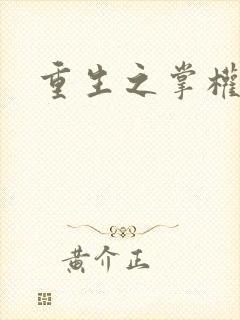 重生之掌權
黄介正